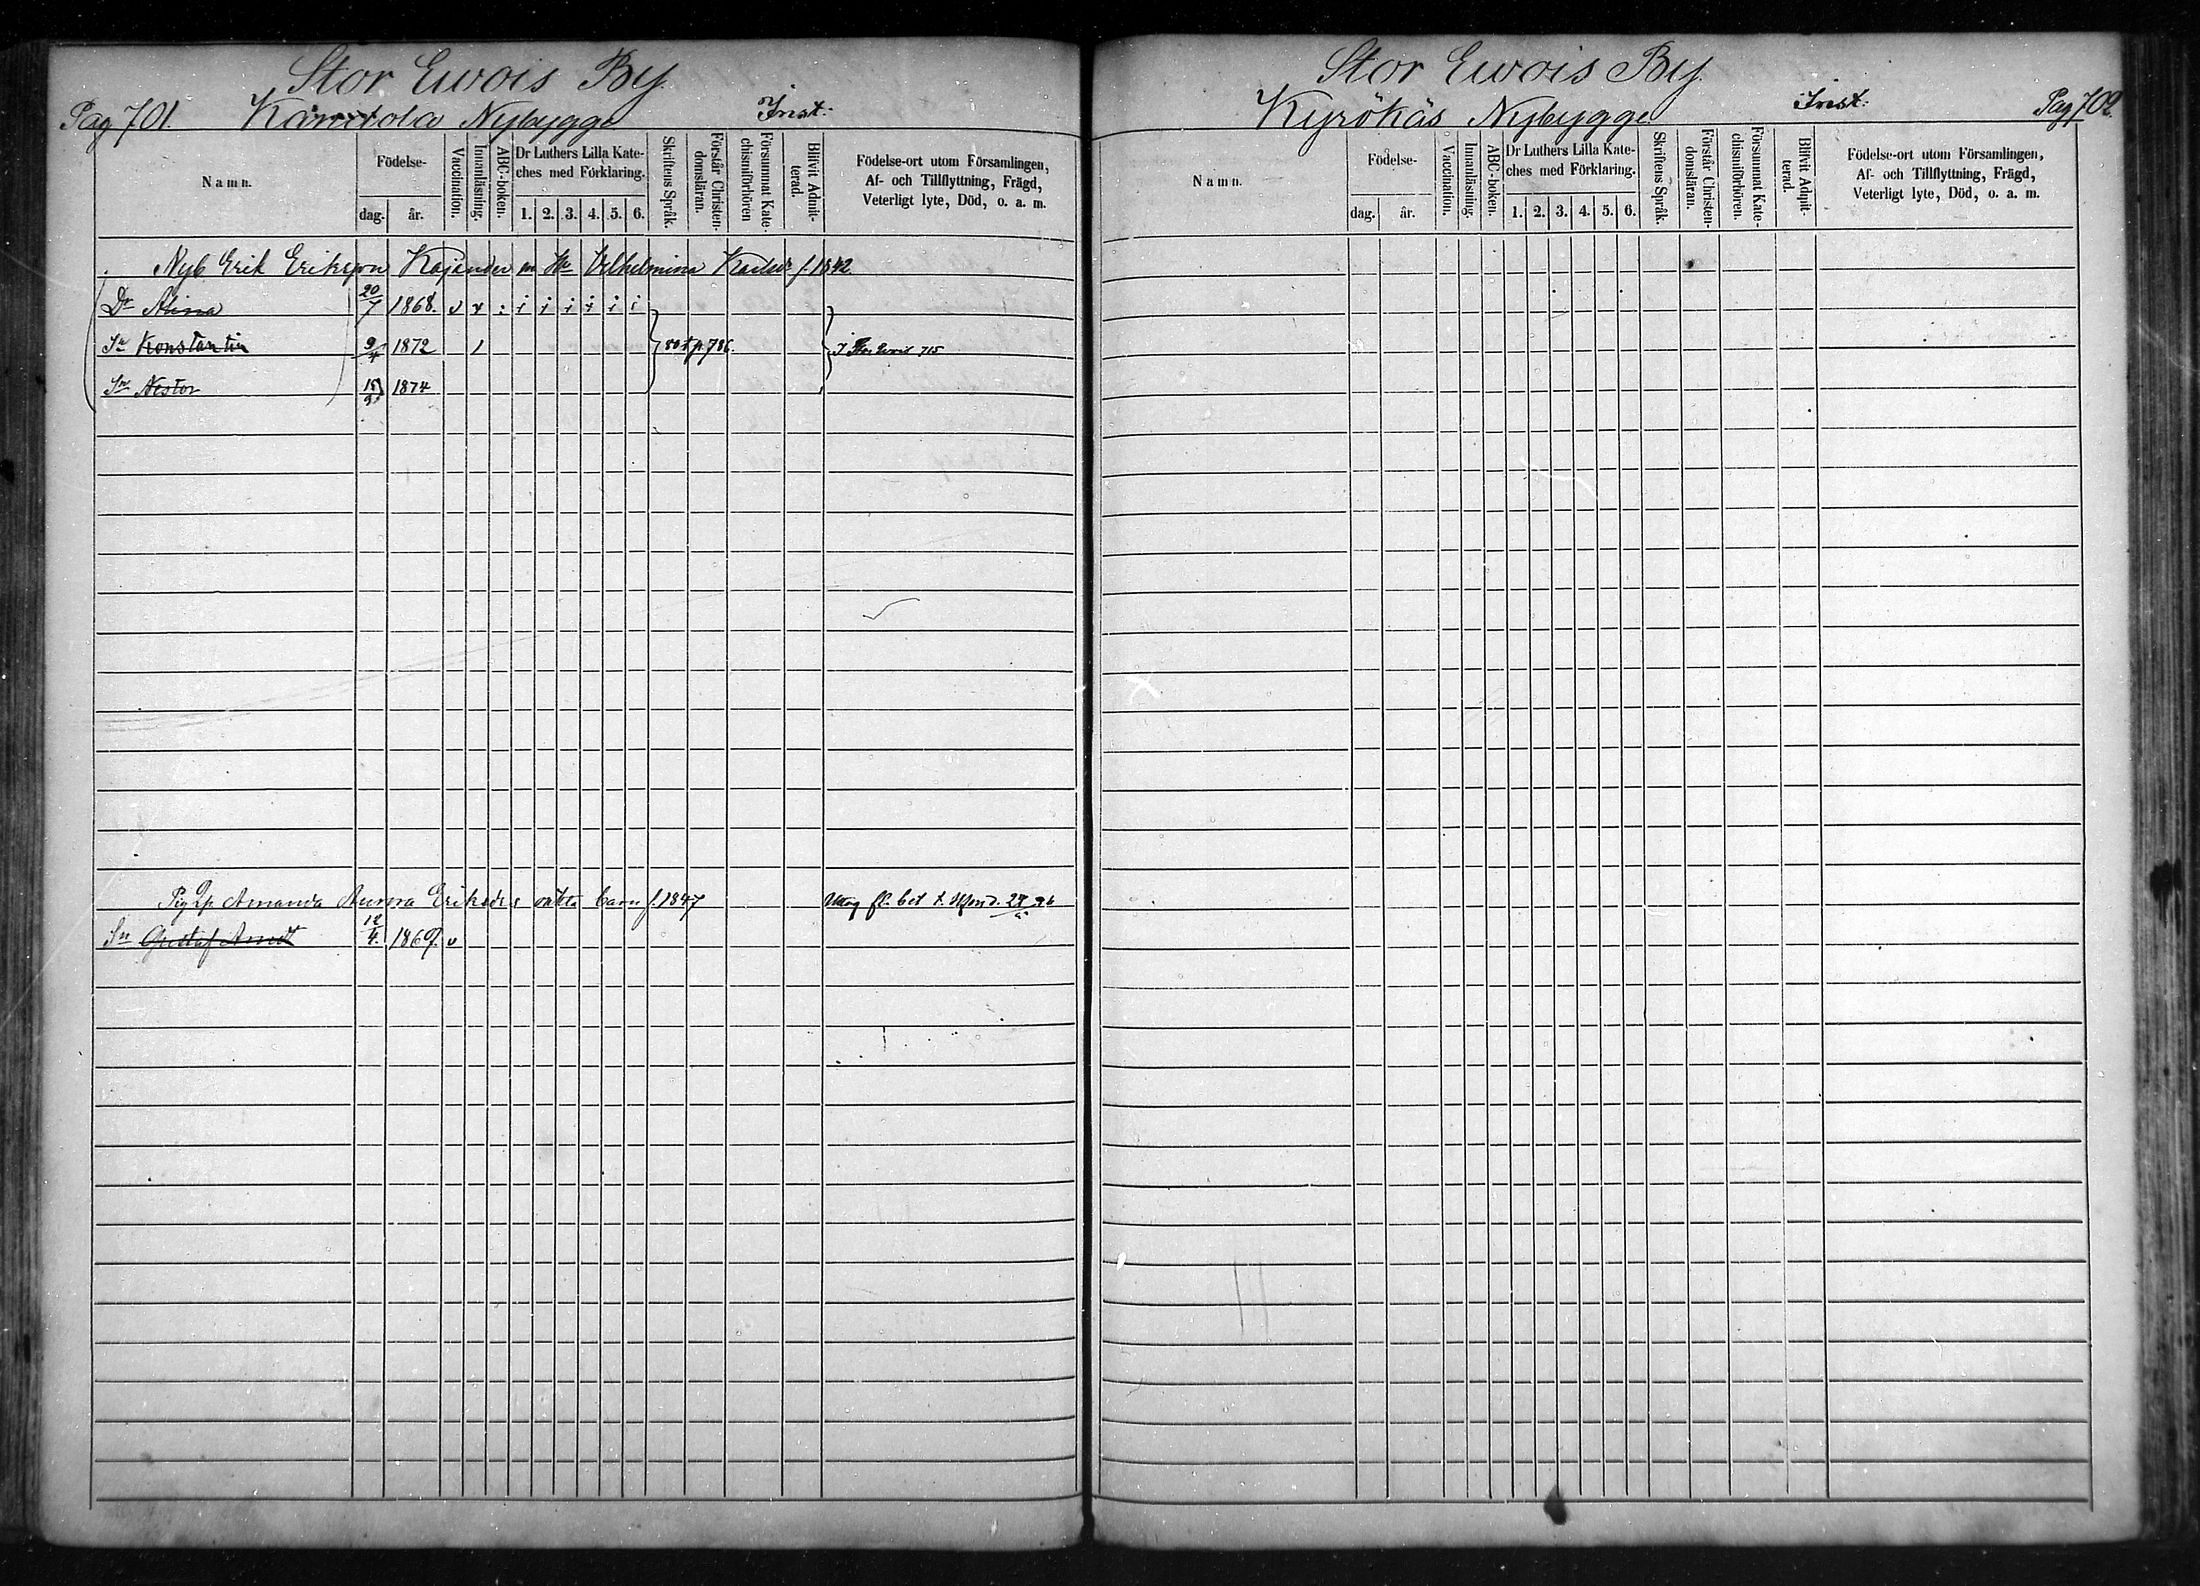 Stor Ewois By.
Pag 701. Nybygge Inst:
Namn. Födelse- dag. år. Vaccination. Innanläsning. ABC-boken. Dr Luthers Lilla Kateches med Förklaring. 1. 2. 3. 4. 5. 6. Skriftens Språk. Förstår Christendomsläran. Försummat Katechismiförhören Blifvit Admitterad. Födelse-ort utom Församlingen, Af- och Tillflyttning, Frägd, Veterligt lyte, Död, o. a. m.
Nyb Erik Eriksson Kajander m Hu Vilhelmina Karlsdr f. 1842
Dr Alina 20/7 1868. v
Sn Konstantin 9/4 1872 p. 786. 715
Sn Nestor 15/9 1874
Pig Amanda Aurora Eriksdrs oäkta barn f. 1847
Sn Gustaf 12/4. 1869. v
Stor Ewois By.
Kyrökäs Nybygge Inst: Pag 702.
Namn. Födelse- dag. år. Vaccination. Innanläsning. ABC-boken. Dr Luthers Lilla Kateches med Förklaring. 1. 2. 3. 4. 5. 6. Skriftens Språk. Förstår Christendomsläran. Försummat Katechismiförhören. Blifvit Admitterad. Födelse-ort utom Församlingen, Af- och Tillflyttning, Frägd, Veterligt lyte, Död, o. a. m.